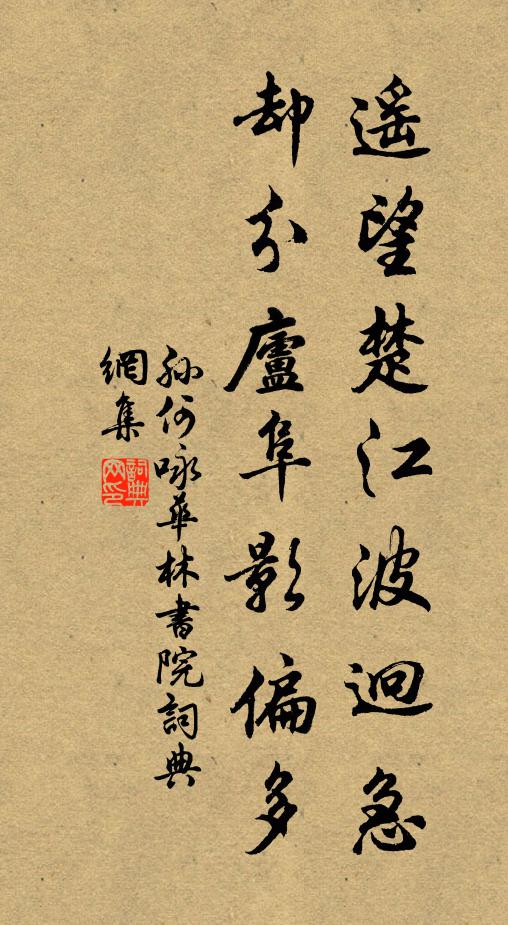 遥望楚江波迴急
却分廬阜影偏多
孫何咏華林書院詞典
網集
詞典網印